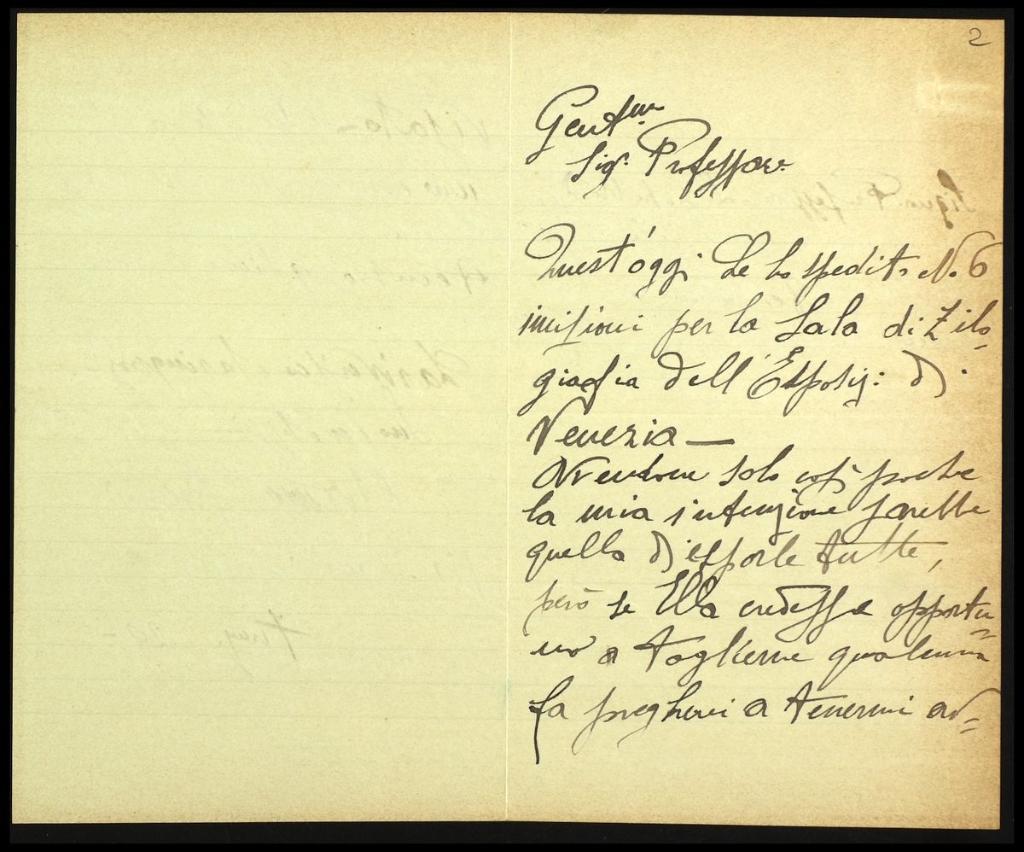 2
Gent.mo
Sig. Professore
Quest'oggi Le ho spedito No. 6
incisioni per la Sala di Zilo-
grafia dell'Esposiz: di
Venezia —
solo così poche
la mia intenzione sarebbe
quella d'esporle tutte,
però se Ella credesse opportu-
no a toglierne qualcuna
La pregherei a tenermi av-